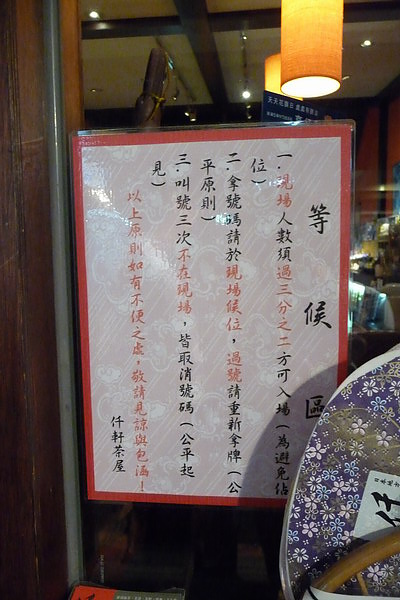 等候區
一.現場人數須過三分之二方可入場(為避免佔
位)
二.拿號碼請於現場候位,過號請重新拿牌(公
平原則)
三.叫號三次不在現場,皆取消號碼(公平起
見)
以上原則如有不便之處,敬請見諒與包涵!
仟軒茶屋